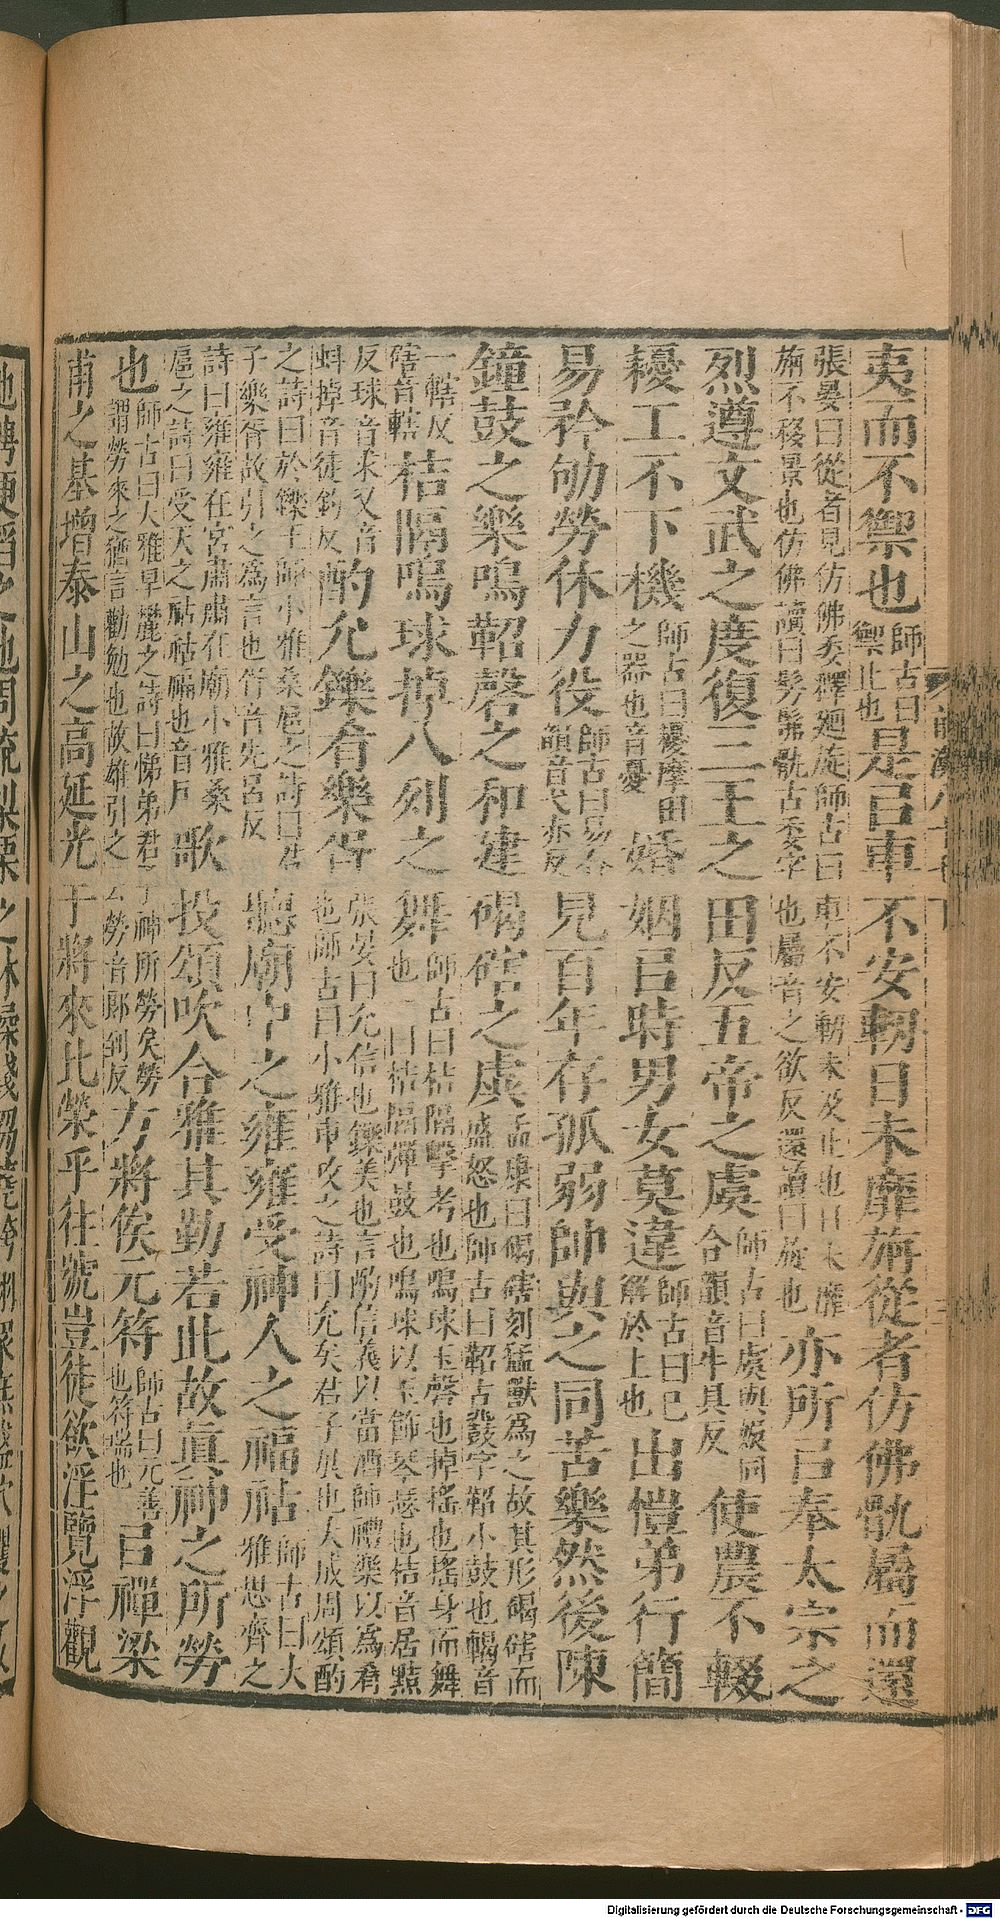 夷而不禦也師古曰禦止也是㠯車不安軔日未靡旃從者仿佛骫屬而還
張晏曰從者見仿佛委釋廻旋師古曰車不安軔未及止也日未靡
旃不移景也仿佛讀曰髣髴骫古委字也屬音之欲反還讀曰旋也亦所㠯奉太宗之
烈遵文武之度復三王之田反五帝之虞師古曰虞與娛同合韻音牛具反使農不輟
耰工不下機師古曰耰摩田之器也音憂婚姻㠯時男女莫違師古曰已解於上也出愷弟行簡
易矜劬勞休力役師古曰易合韻音弋赤反見百年存孤弱帥與之同苦樂然後陳
鐘鼓之樂鳴鞀磬之和建碣磍之虡孟康曰碣磍刻猛獸為之故其形碣磍而盛怒也師古曰鞀古鼗字鞀小鼓也碣音
一轄反磍音轄拮隔鳴球掉八列之舞師古曰拮隔擊考也鳴球玉磬也掉搖也搖身而舞也一曰拮隔彈鼓也鳴球以玉飾琴瑟也拮音居黠
反球音求又音蚪掉音徒釣反酌允鑠肴樂胥張晏曰允信也鑠美也言酌信義以當酒師禮樂以為肴也師古曰小雅車攻之詩曰允矣君子展也大成周頌酌
之詩曰於鑠王師小雅桑扈之詩曰君子樂胥故引之為言也胥音先呂反聽廟中之雍雍受神人之福祜師古曰大雅思齊之
詩曰雍雍在宮肅肅在廟小雅桑扈之詩曰受天之祜祜福也音戶歌投頌吹合雅其勤若此故真神之所勞
也師古曰大雅旱麓之詩曰悌弟君子神所勞矣勞謂勞來之猶言勸勉也故雄引之云勞音郎到反方將俟元符師古曰元善也符瑞也㠯禪梁
甫之基增泰山之高延光于將來比榮乎往號豈徒欲淫覽浮觀
Digitalisierung gefördert durch die Deutsche Forschungsgemeinschaft - DFG